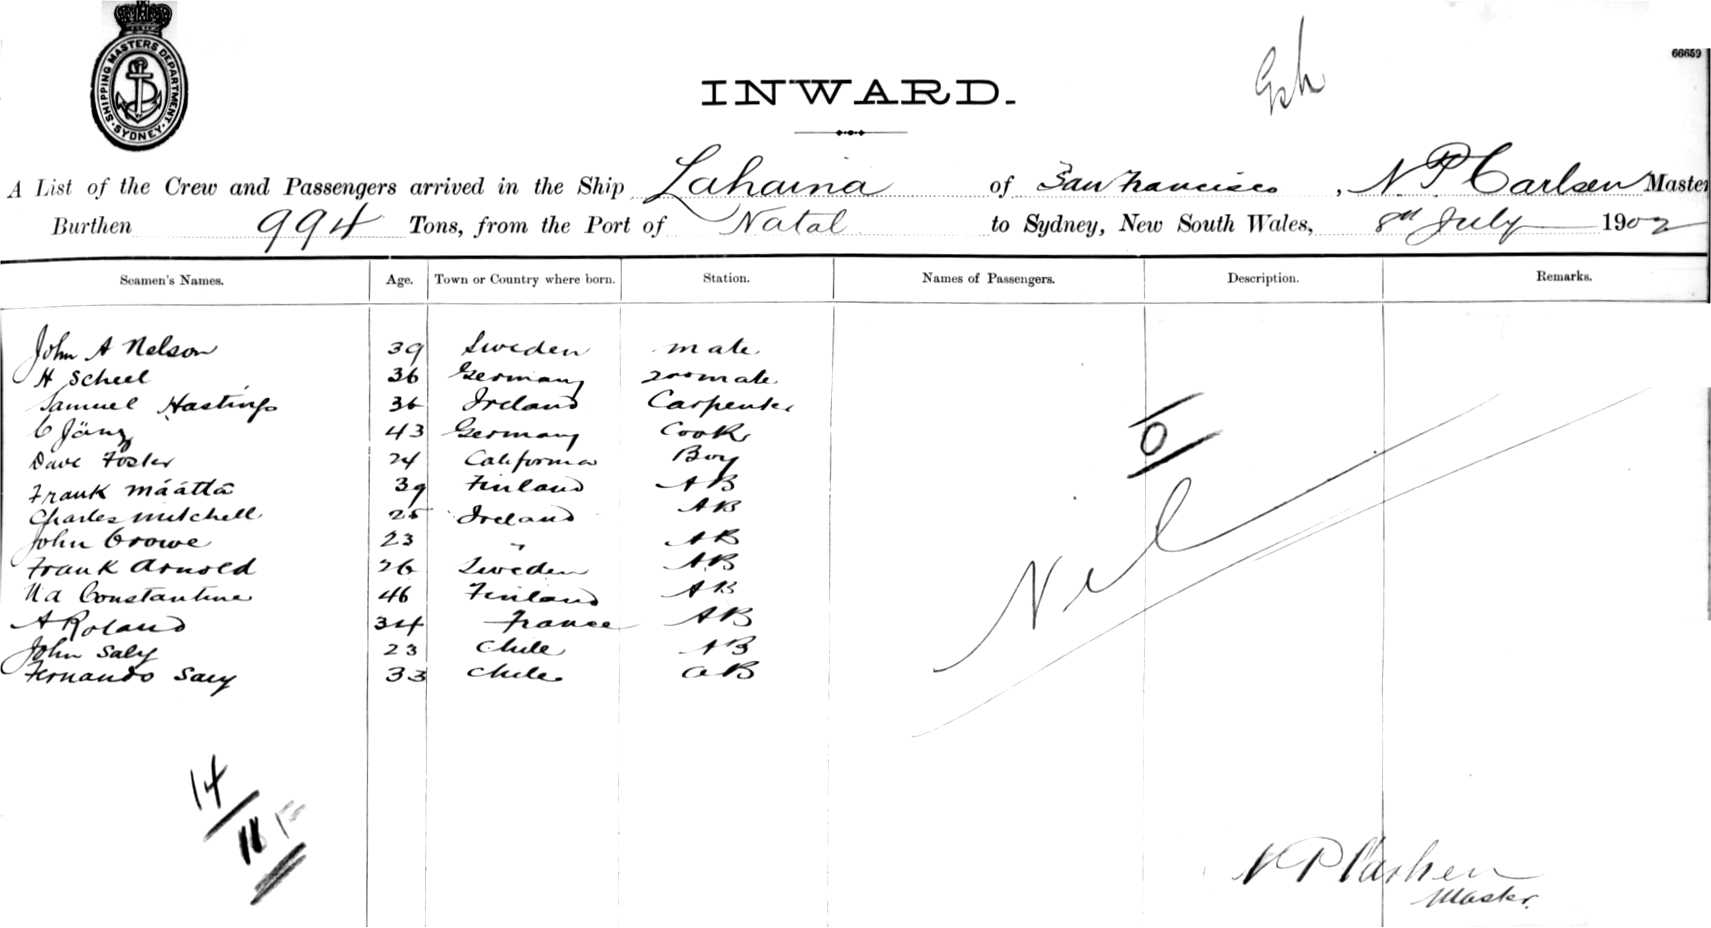 SHIPPING MASTERS DEPARTMENT
SYDNEY
66659
INWARD.
A List of the Crew and Passengers arrived in the Ship Lahaina of San Francisco, N P Carlsen Master
Burthen 994 Tons, from the Port of Natal to Sydney, New South Wales, 8th July 1902
Seamen's Names. Age. Town or Country where born. Station. Names of Passengers. Description. Remarks.
John A Nelson 39 Sweden mate
H Scheel 36 Germany 2nd mate
Samuel Hastings 36 Ireland Carpenter
C 43 Germany Cook
Dave Foster 24 California Boy
Frank Määttä 39 Finland AB
Charles Mitchell 25 Ireland AB
John Crowe 23 " AB
Frank Arnold 26 Sweden AB
Constantine 46 Finland AB
A Roland 34 France AB
John Saly 23 Chile AB
Fernando Saey 33 Chile AB
0
Nil
14
N P Carlsen
Master.